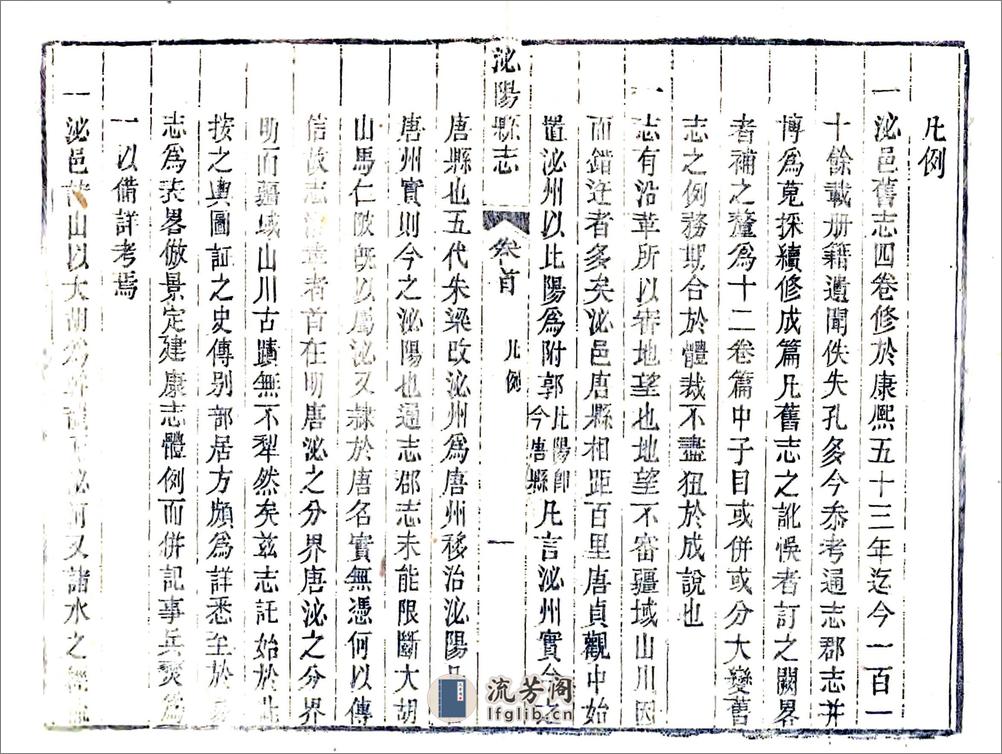 凡例
一泌邑舊志四卷修於康熙五十三年迄今一百一
十餘載册籍遺聞佚失孔多今叅考通志郡志并
博爲蒐採續修成篇凡舊志之訛悞者訂之闕畧
者補之釐爲十二卷篇中子目或併或分大變舊
志之例務期合於體裁不盡狃於成說也
一志有沿革所以審地望也地望不審疆域山川因
而錯迕者多矣泌邑唐縣相距百里唐貞觀中始
置泌州以比陽爲附郭比陽卽今唐縣凡言泌州實今之
泌陽縣志 卷首 凡例 一
唐縣也五代朱梁改泌州爲唐州移治泌陽凡言
唐州實則今之泌陽也通志郡志未能限斷大胡
山馬仁陂旣以爲泌又隷於唐名實無憑何以傳
信故志泌者首在明唐泌之分界唐泌之分界
明而疆域山川古蹟無不犁然矣兹志託始於此
按之輿圖証之史傳别部居方頗爲詳悉至於
志爲表畧倣景定建康志體例而併記事兵燹爲
一以備詳考焉
一泌邑 山以大胡 泌 又諸水之
流芳阁
lfglib.cn